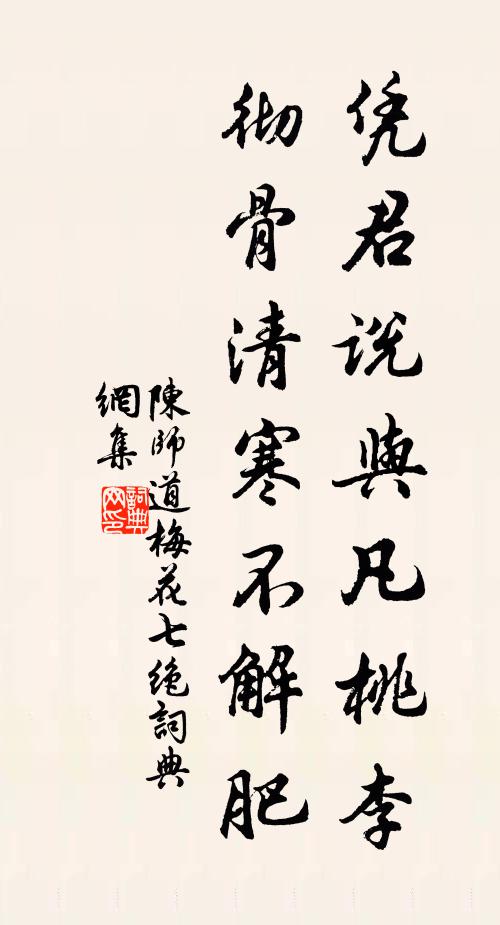 凭君说與凡桃李
彻骨清寒不解肥
陳師道梅花七绝詞典
網集
詞典
网印